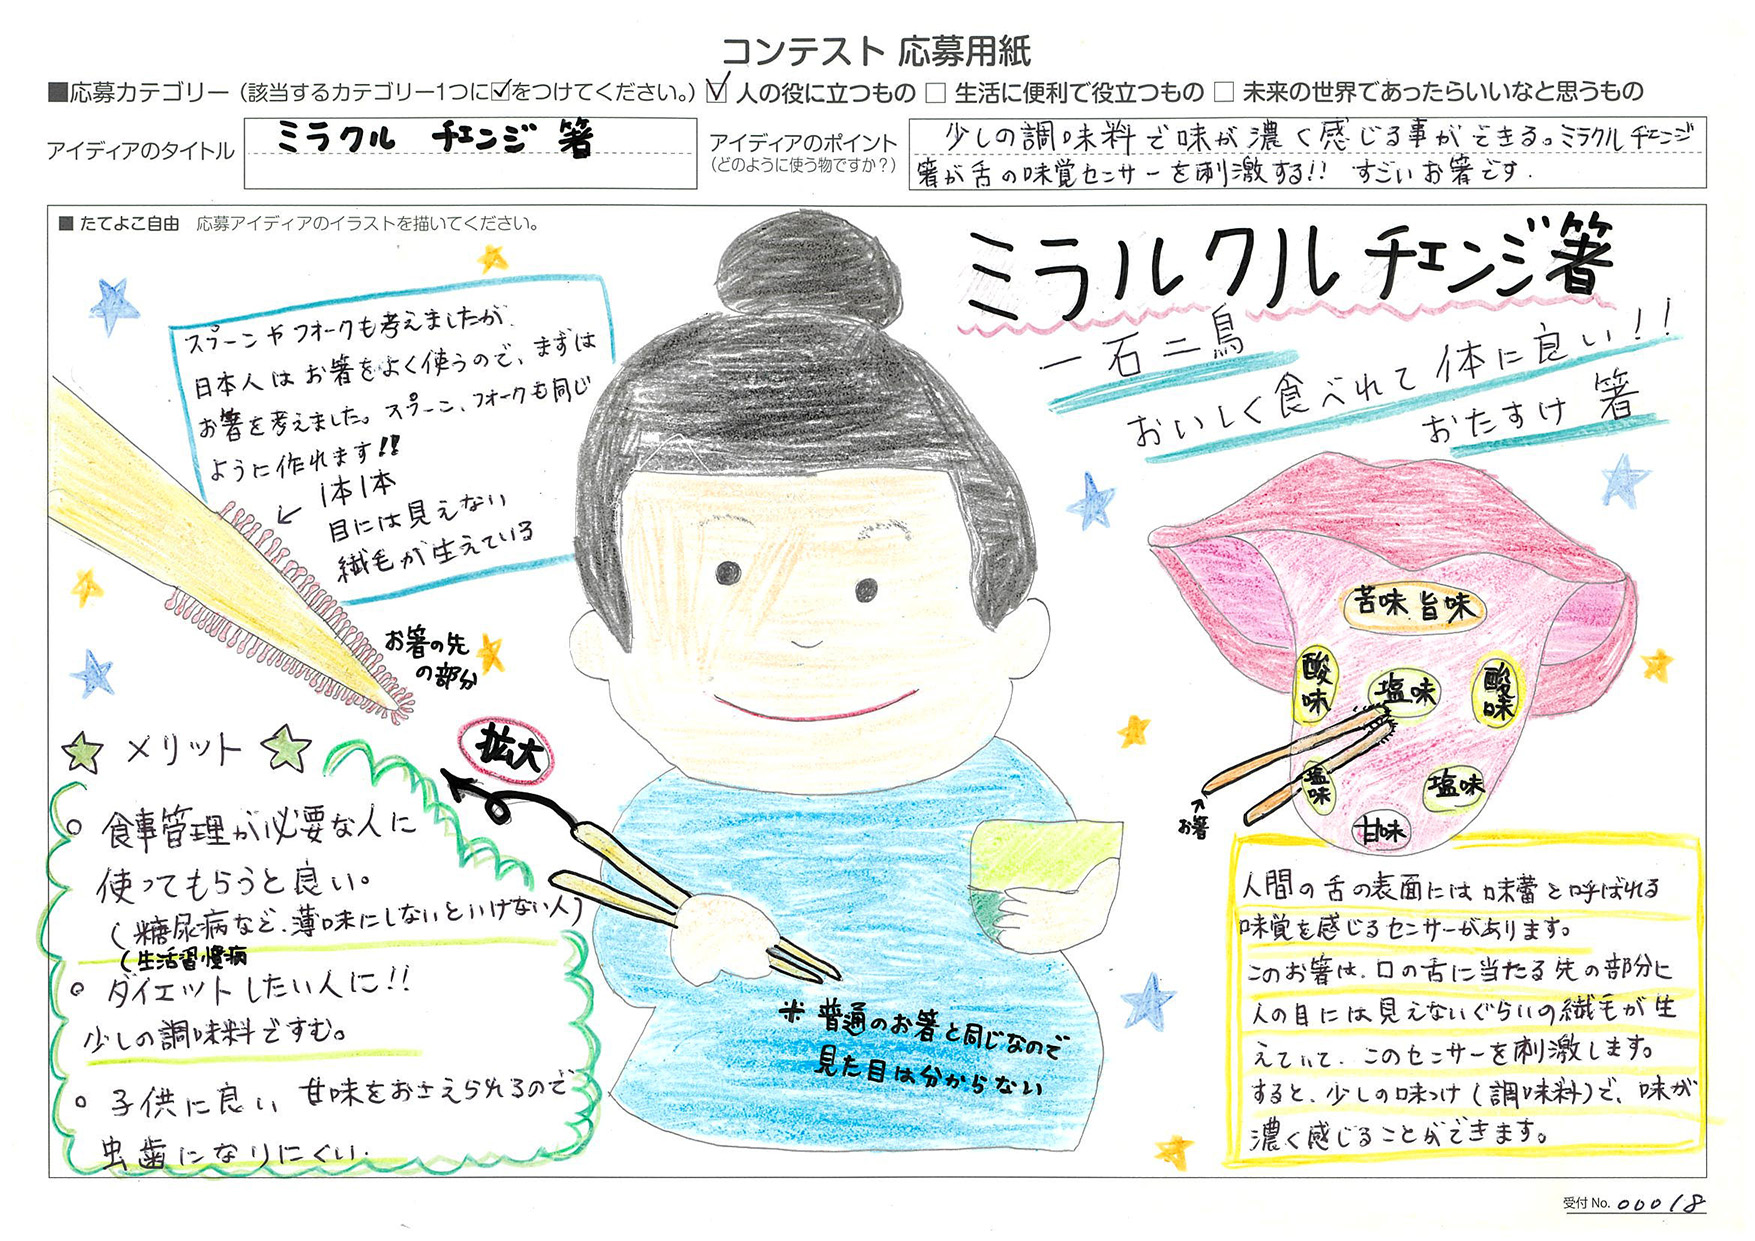 コンテスト 応募用紙
■応募カテゴリー（該当するカテゴリー1つに☑をつけてください。）☑ 人の役に立つもの □ 生活に便利で役立つもの □ 未来の世界であったらいいなと思うもの
アイディアのタイトル
ミラクル チェンジ 箸
アイディアのポイント
（どのように使う物ですか？）
少しの調味料で味が濃く感じる事ができる。ミラクルチェンジ
箸が舌の味覚センサーを刺激する!! すごいお箸です.
■ たてよこ自由 応募アイディアのイラストを描いてください。
ミラルクルチェンジ箸
一石二鳥
おいしく食べれて体に良い!!
おたすけ 箸
スプーンやフォークも考えましたが、
日本人はお箸をよく使うので、まずは
お箸を考えました。スプーン、フォークも同じ
ように作れます!!
1本1本
目には見えない
繊毛が生えている
お箸の先
の部分
拡大
メリット
○ 食事管理が必要な人に
使ってもらうと良い。
(糖尿病など、薄味にしないといけない人)
(生活習慣病
○ ダイエットしたい人に!!
少しの調味料ですむ。
○ 子供に良い 甘味をおさえられるので
虫歯になりにくい.
※ 普通のお箸と同じなので
見た目は分からない
苦味 旨味
酸味
塩味
酸味
塩味
塩味
甘味
↑
お箸
人間の舌の表面には味蕾と呼ばれる
味覚を感じるセンサーがあります。
このお箸は、口の舌に当たる先の部分に
人の目には見えないぐらいの繊毛が生
えていて、このセンサーを刺激します。
すると、少しの味つけ(調味料)で、味が
濃く感じることができます。
受付 No. 00018